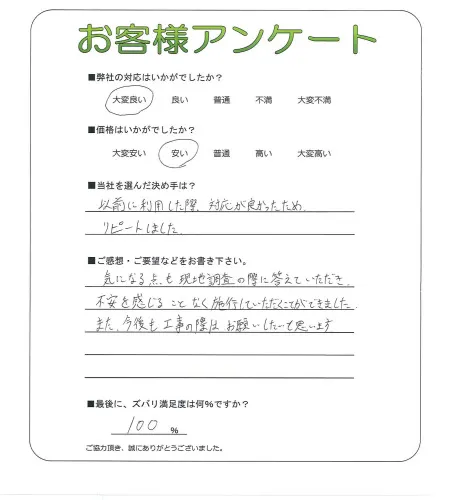 お客様アンケート
■弊社の対応はいかがでしたか？
大変良い 良い 普通 不満 大変不満
■価格はいかがでしたか？
大変安い 安い 普通 高い 大変高い
■当社を選んだ決め手は？
以前に利用した際、対応が良かったため、
リピートしました
■ご感想・ご要望などをお書き下さい。
気になる点も現地調査の際に答えていただき、
不安を感じることなく施行していただくことができました
また、今後も工事の際はお願いしたいと思います
■最後に、ズバリ満足度は何%ですか？
100 %
ご協力頂き、誠にありがとうございました。